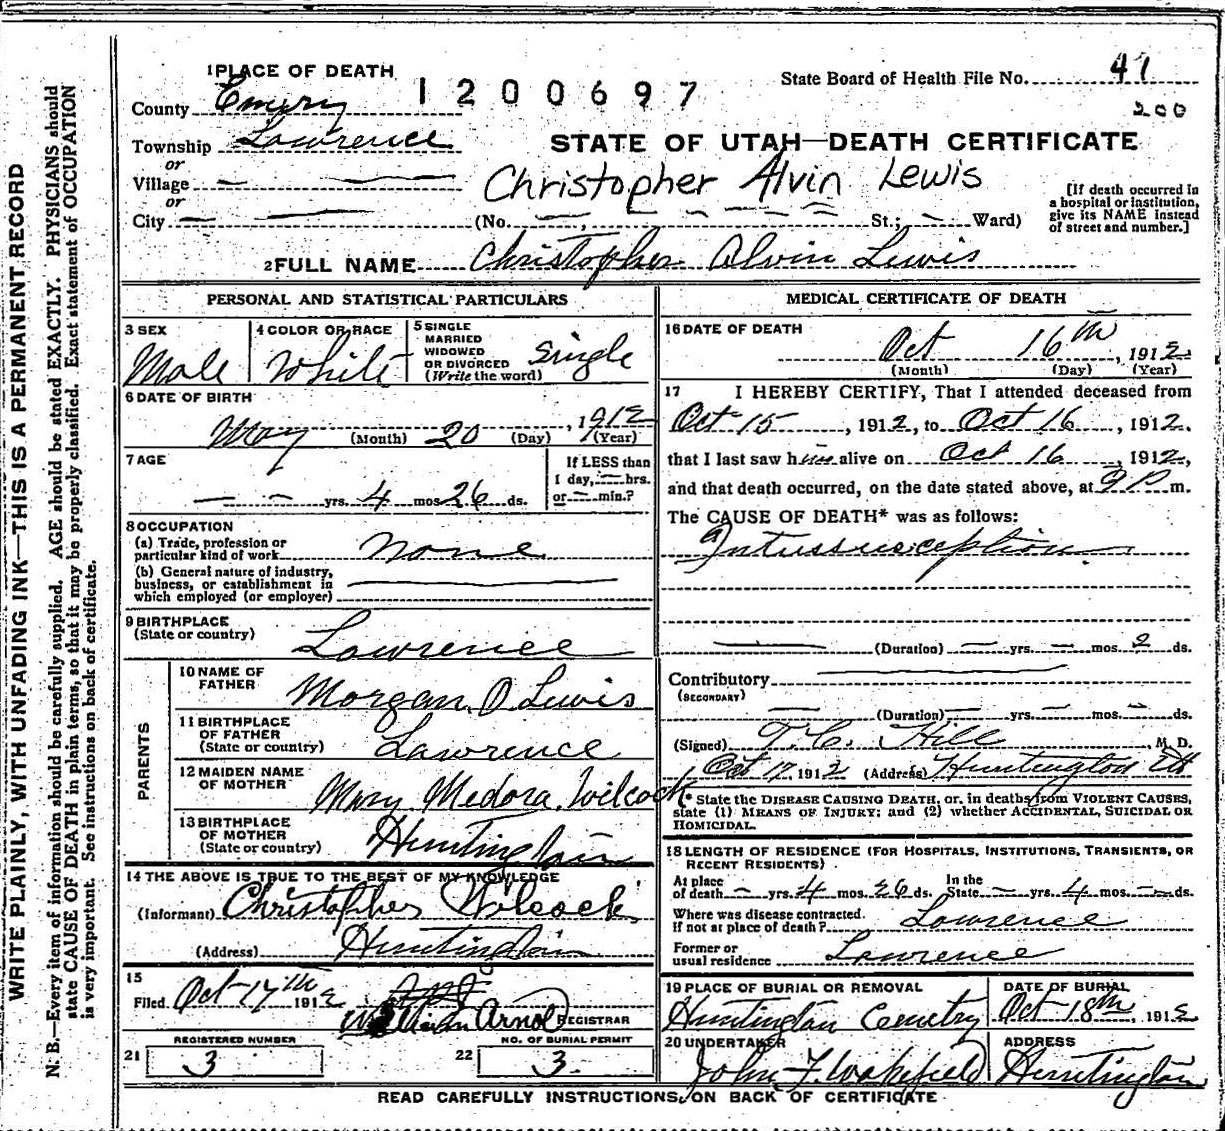 WRITE PLAINLY, WITH UNFADING INK—THIS IS A PERMANENT RECORD
N. B.—Every item of information should be carefully supplied. AGE should be stated EXACTLY. PHYSICIANS should
state CAUSE OF DEATH in plain terms, so that it may be properly classified. Exact statement of OCCUPATION
is very important. See instructions on back of certificate.
1 PLACE OF DEATH
State Board of Health File No. 41
County Emery 1200697
200
Township Lawrence
STATE OF UTAH—DEATH CERTIFICATE
or
Village —
Christopher Alvin Lewis
[If death occurred in
a hospital or institution,
give its NAME instead
of street and number.]
or
City — (No. — St.; — Ward)
2 FULL NAME Christopher Alvin Lewis
PERSONAL AND STATISTICAL PARTICULARS
3 SEX
Male
4 COLOR OR RACE
White
5 SINGLE
MARRIED
WIDOWED
OR DIVORCED
(Write the word)
Single
6 DATE OF BIRTH
May 20, 1912
(Month) (Day) (Year)
7 AGE
— yrs. 4 mos. 26 ds.
If LESS than
1 day, — hrs.
or — min.?
8 OCCUPATION
(a) Trade, profession or
particular kind of work None
(b) General nature of industry,
business, or establishment in
which employed (or employer)
9 BIRTHPLACE
(State or country)
Lawrence
PARENTS
10 NAME OF
FATHER
Morgan O Lewis
11 BIRTHPLACE
OF FATHER
(State or country)
Lawrence
12 MAIDEN NAME
OF MOTHER
Mary Medora Wilcock
13 BIRTHPLACE
OF MOTHER
(State or country)
Huntington
14 THE ABOVE IS TRUE TO THE BEST OF MY KNOWLEDGE
(Informant) Christopher Wilcock
(Address) Huntington
15
Filed Oct 17th 1912
William Arnold REGISTRAR
REGISTERED NUMBER
21 3
NO. OF BURIAL PERMIT
22 3.
MEDICAL CERTIFICATE OF DEATH
16 DATE OF DEATH
Oct 16th, 1912
(Month) (Day) (Year)
17 I HEREBY CERTIFY, That I attended deceased from
Oct 15, 1912, to Oct 16, 1912.
that I last saw him alive on Oct 16, 1912,
and that death occurred, on the date stated above, at 9 P m.
The CAUSE OF DEATH* was as follows:
Intussusception
(Duration) — yrs. — mos. 2 ds.
Contributory
(SECONDARY)
(Duration) — yrs. — mos. — ds.
(Signed) T. C. Hill, M. D.
Oct 17 1912 (Address) Huntington Ut
* State the DISEASE CAUSING DEATH, or, in deaths from VIOLENT CAUSES,
state (1) MEANS OF INJURY; and (2) whether ACCIDENTAL, SUICIDAL OR
HOMICIDAL.
18 LENGTH OF RESIDENCE (FOR HOSPITALS, INSTITUTIONS, TRANSIENTS, OR
RECENT RESIDENTS)
At place
of death — yrs. 4 mos. 26 ds.
In the
State — yrs. 4 mos. — ds.
Where was disease contracted.
If not at place of death? Lawrence
Former or
usual residence Lawrence
19 PLACE OF BURIAL OR REMOVAL
Huntington Cemetry
DATE OF BURIAL
Oct 18th, 1912
20 UNDERTAKER
John F. Wakefield
ADDRESS
Huntington
READ CAREFULLY INSTRUCTIONS ON BACK OF CERTIFICATE